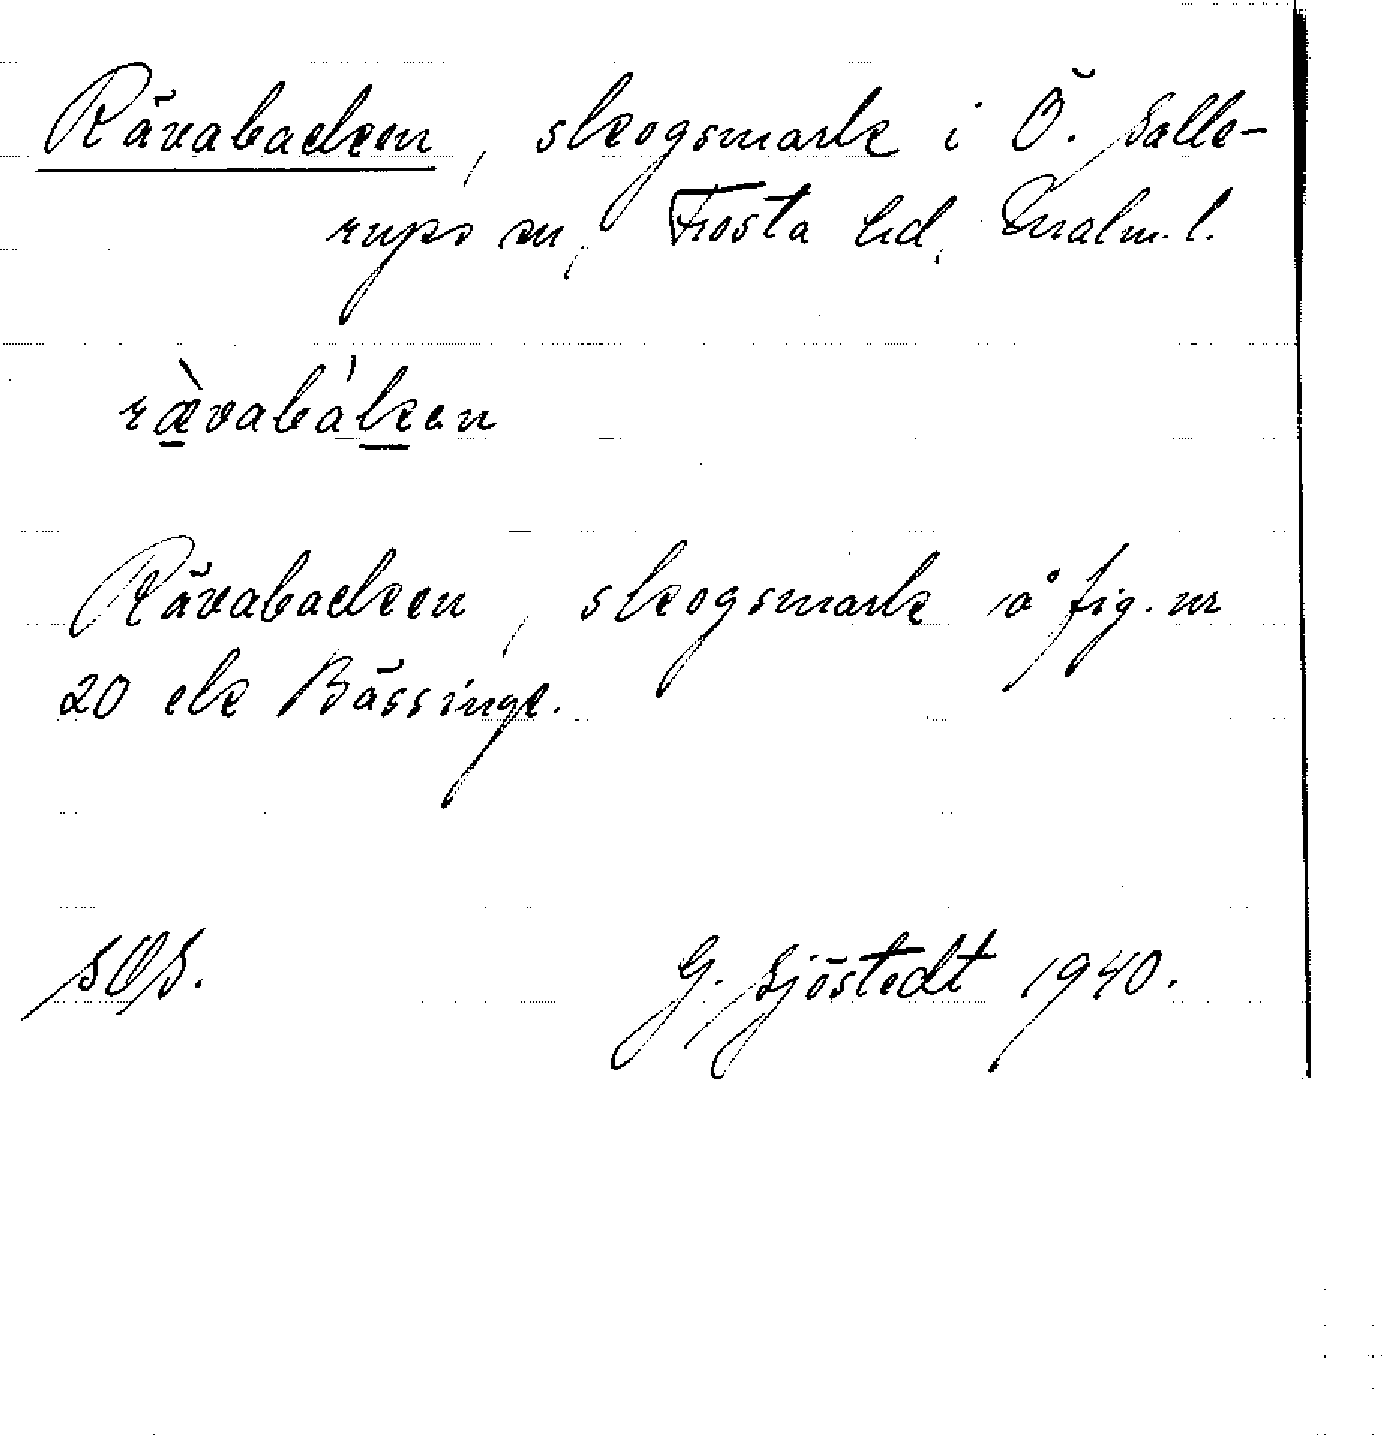 Rävabacken, skogsmark i Ö. Salle-
rups sn, Frosta hd, Malm. l.
rævabàken
Rävabacken, skogsmark å fig. nr
20 ek Bässinge.
SOS.
G. Sjöstedt 1940.